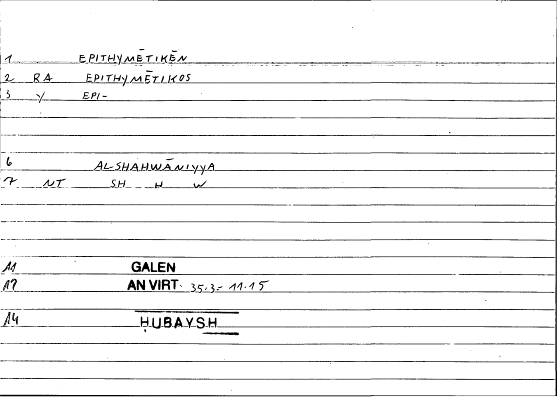 1 EPITHYMĒTIKĒN
2 RA EPITHYMĒTIKOS
3 Y EPI-
6 AL-SHAHWĀNIYYA
7 NT SH H W
11 GALEN
12 AN VIRT. 35.3 - 11.15
14 ḤUBAYSH